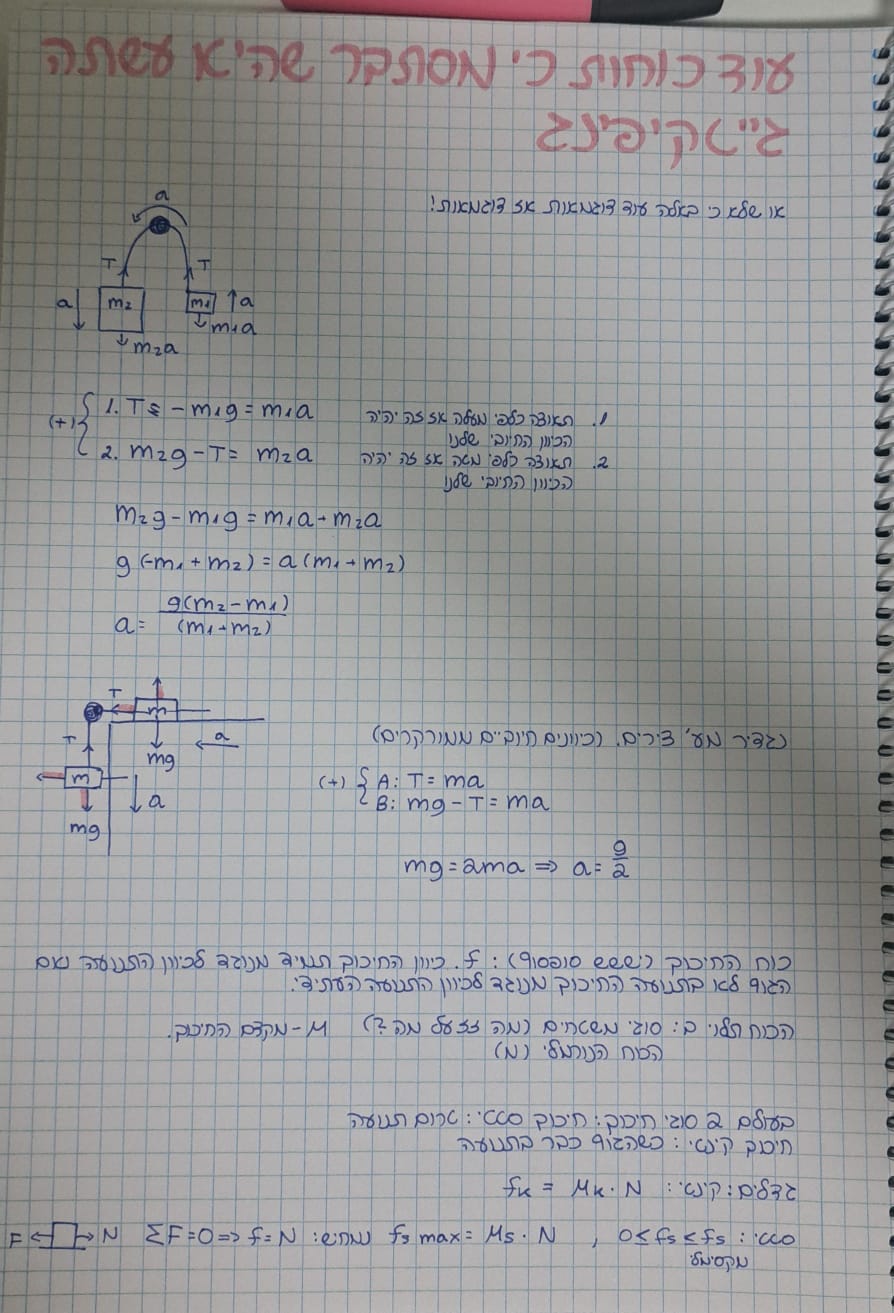 עוד כוחות כי מסתבר שהיא עשתה
בלי פיקח״ג
או שלא כי באלה עוד דוגמאות אז דוגמאות!
a
T T
a m2 m1 a
m1a
m2a
(+) { 1. T - m1g = m1a
1. תאוצה כלפי מעלה אז זה יהיה
הכיוון החיובי שלנו
2. m2g - T = m2a
2. תאוצה כלפי מטה אז זה יהיה
הכיוון החיובי שלנו
m2g - m1g = m1a + m2a
g(-m1 + m2) = a(m1 + m2)
a = g(m2 - m1) / (m1 + m2)
T m
a
T mg
m a
mg
(כיוונים חיוביים ממורקרים)
(+) { A: T = ma
B: mg - T = ma
mg = 2ma ⇒ a = g/2
כוח החיכוך (יששש סופסוף): f. כיוון החיכוך תמיד מנוגד לכיוון התנועה ואם
הגוף לא בתנועה החיכוך מנוגד לכיוון התנועה העתידי.
הכוח תלוי ב: סוגי משטחים (מה זז על מה?) μ - מקדם החיכוך.
הכוח הנורמלי (N)
בעולם 2 סוגי חיכוך: חיכוך סטטי: טרום תנועה
חיכוך קינטי: כשהגוף כבר בתנועה
גדלים: קינטי: fk = μk · N
סטטי: 0 ≤ fs ≤ fs מקסימלי , fs max = μs · N ΣF=0 ⇒ f=N
F N